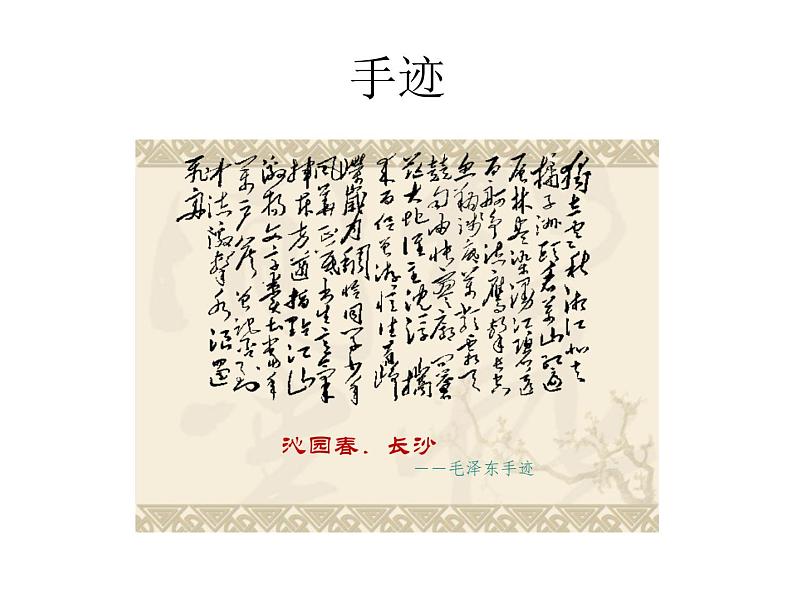 手迹
独立寒秋湘江北去
橘子洲头看万山红遍
层林尽染漫江碧透
百舸争流鹰击长空
鱼翔浅底万类霜天
竞自由怅寥廓问苍
茫大地谁主沉浮携
来百侣曾游忆往昔峥
嵘岁月稠恰同学少年
风华正茂书生意气
挥斥方遒指点江山
激扬文字粪土当年
万户侯曾记否到
中流击水浪遏
飞舟
沁园春．长沙
——毛泽东手迹